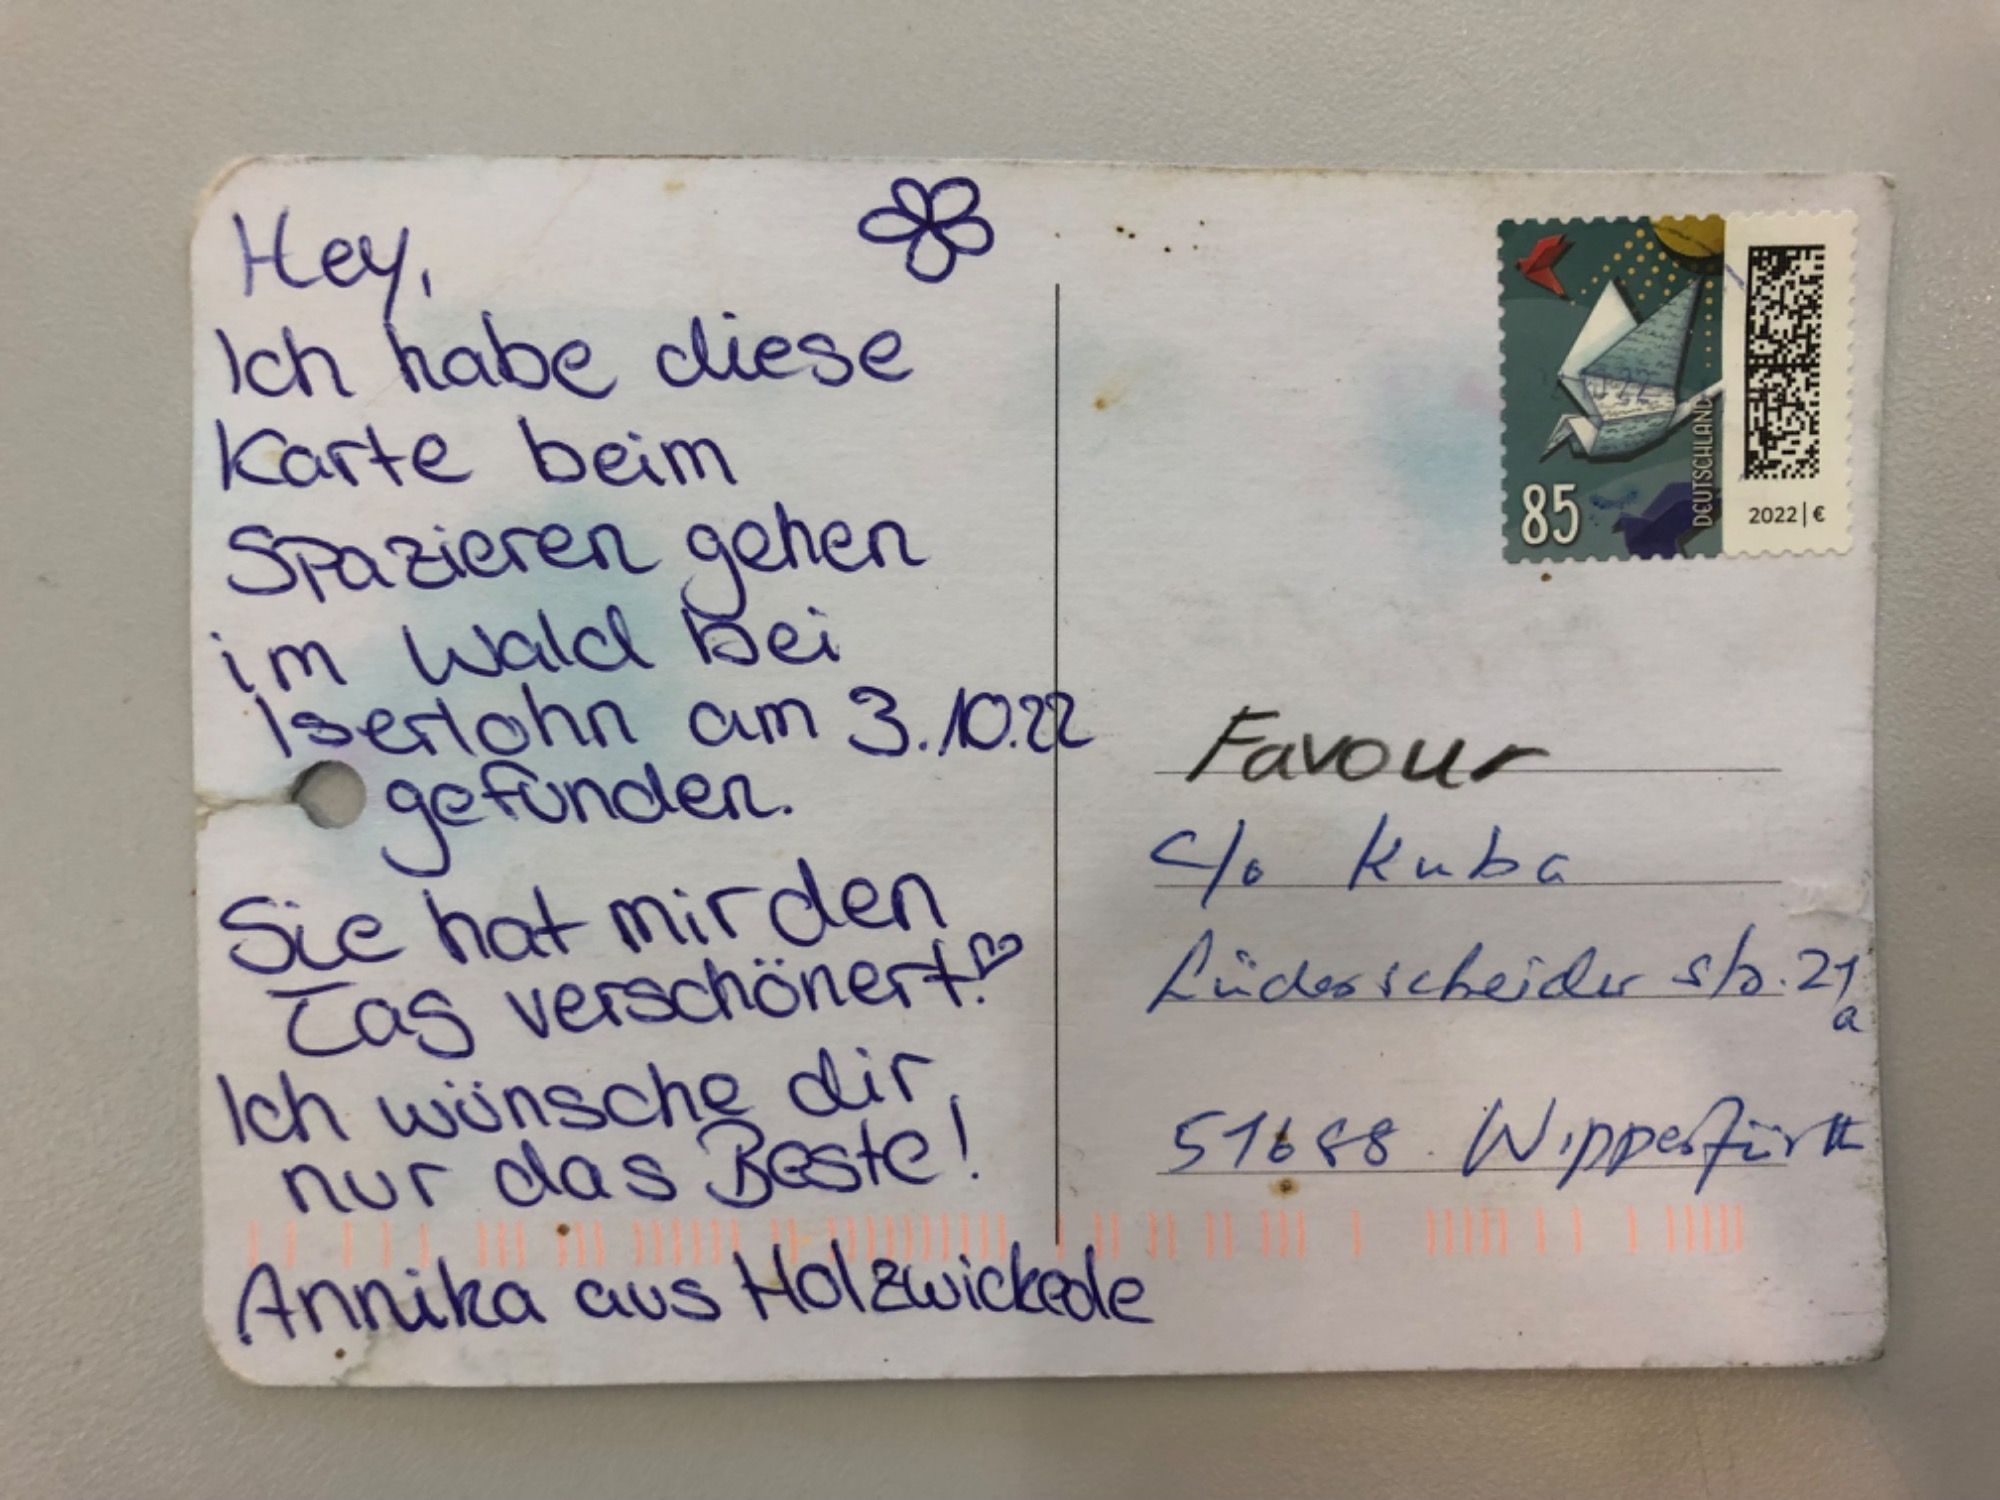 Hey,
Ich habe diese
Karte beim
Spazieren gehen
im Wald bei
Iserlohn am 3.10.22
gefunden.
Sie hat mir den
Tag verschönert.
Ich wünsche dir
nur das Beste!
Annika aus Holzwickede
85
DEUTSCHLAND
2022|€
Favour
c/o Kuba
Lüderscheider Str. 21
a
51688 Wipperfürth